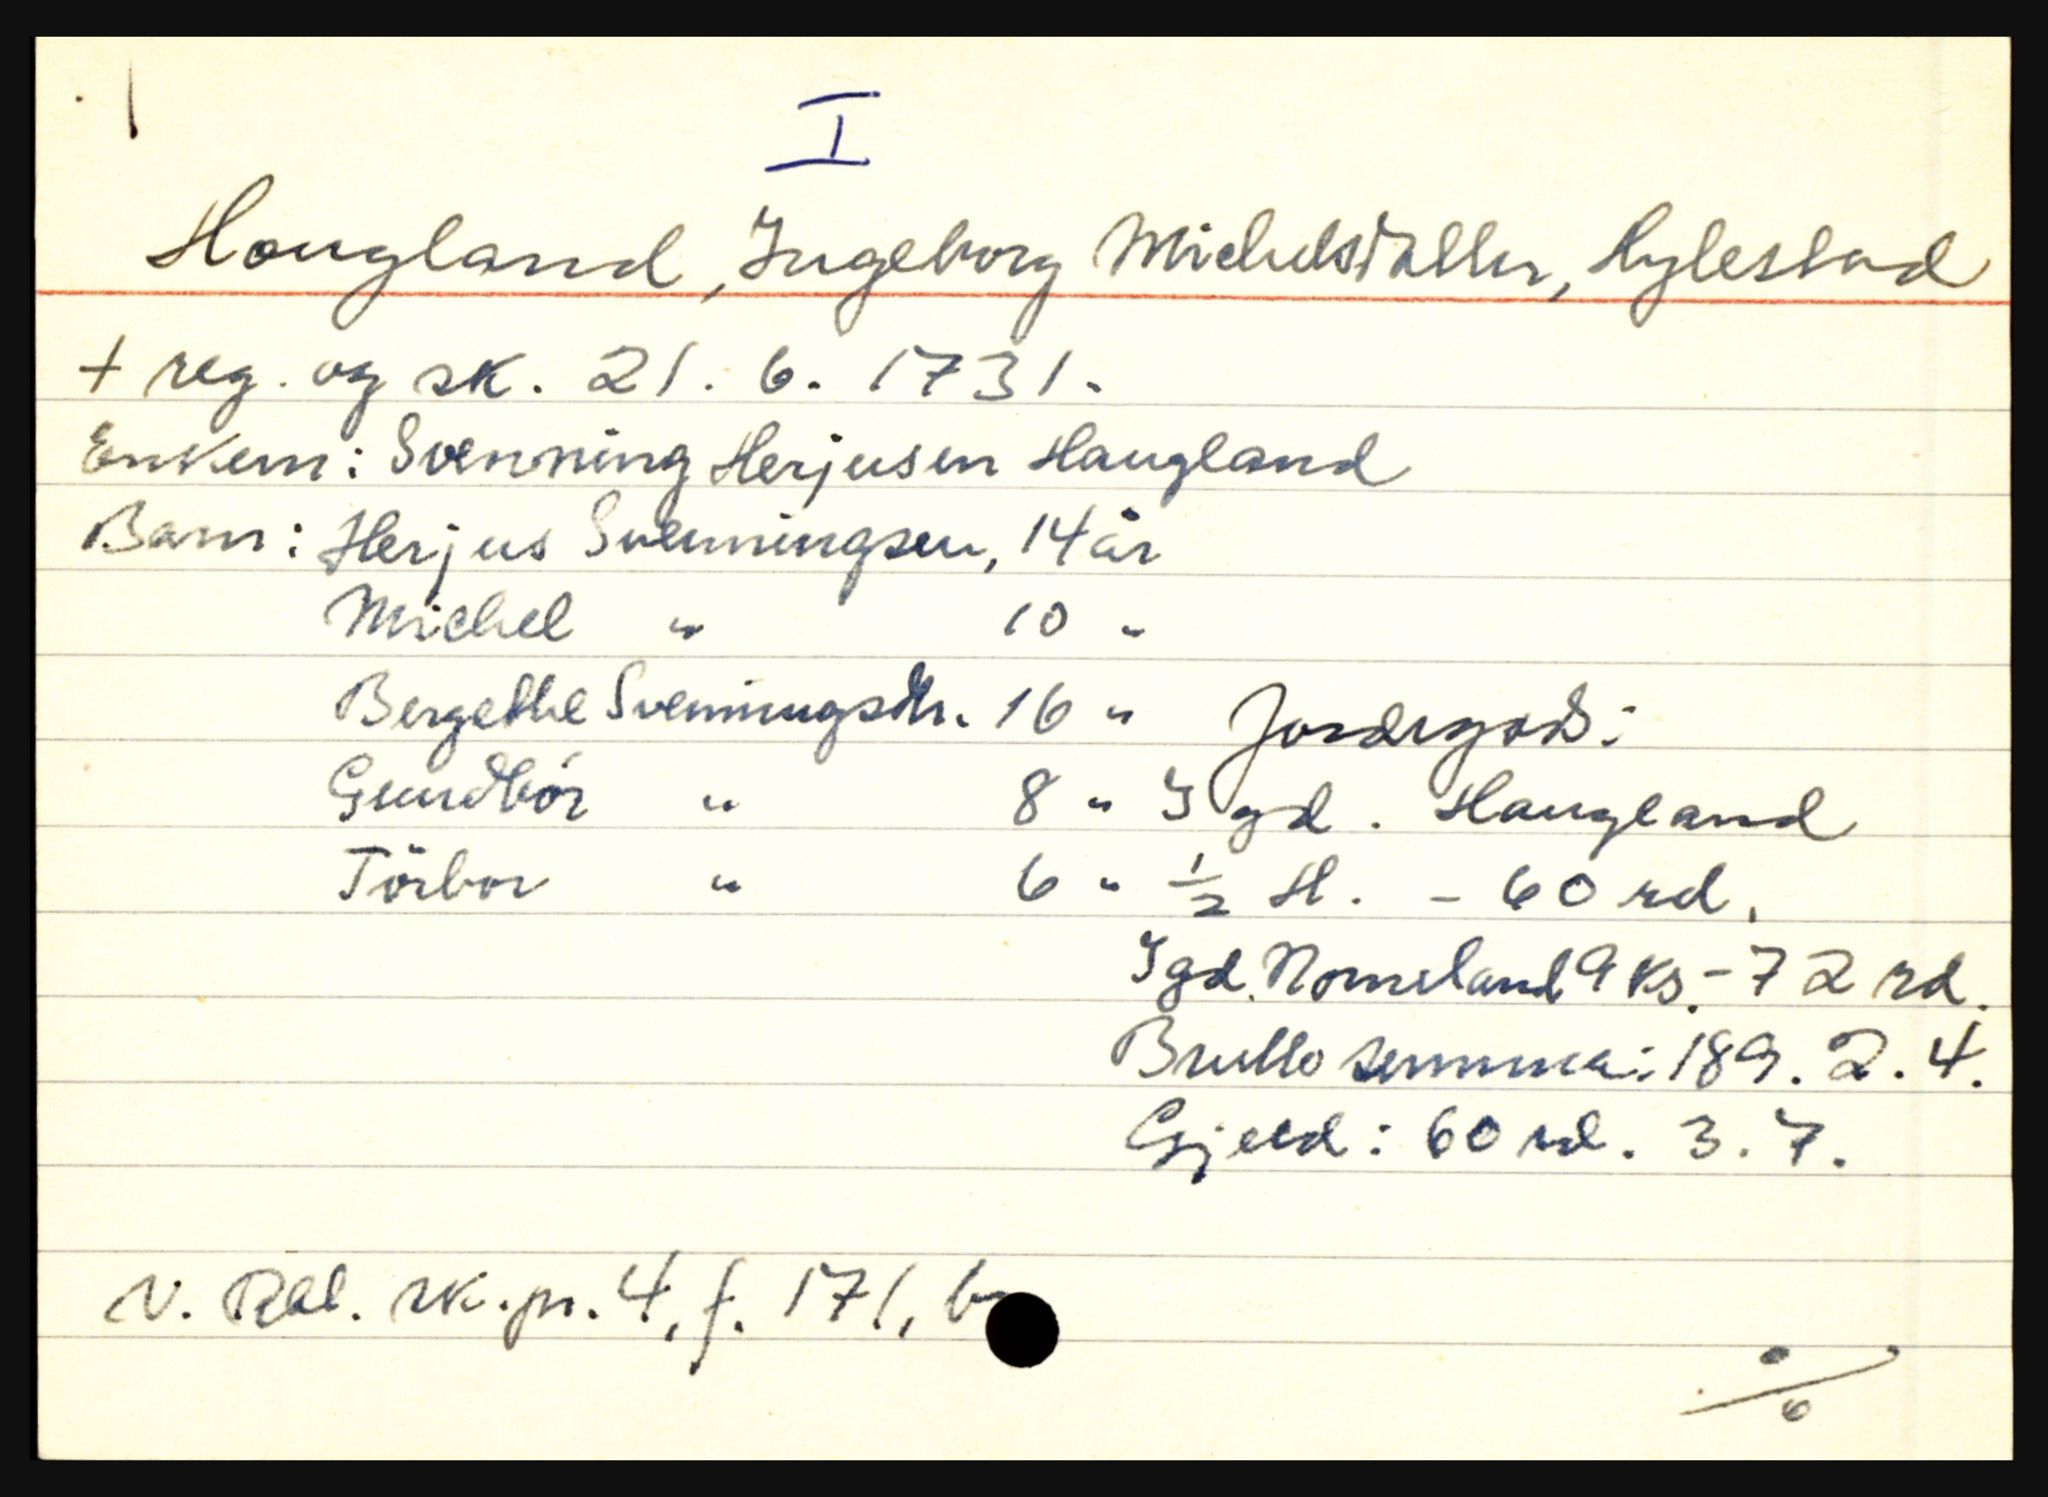 I
Hougland, Ingeborg Michelsdatter, Hylestad
+ reg. og sk. 21. 6. 1731.
Enkem: Svenning Herjusen Haugland
Barn: Herjus Svenningsen, 14 år
Michel " 10 "
Bergethe Svenningsdtr. 16 " Jordegods:
Gundbór " 8 " I gd. Haugland
Törbor " 6 " 1/2 H. - 60 rd.
I gd. Nomeland 9 ks. - 72 rd.
Brutto summa: 189. 2. 4.
Gjeld: 60 rd. 3. 7.
N. Rbl. sk.pr. 4, f. 171, b